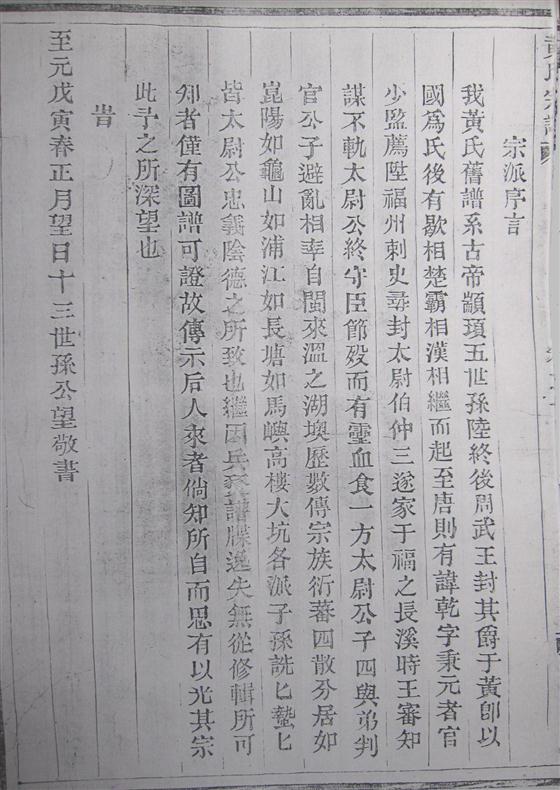 黃氏宗譜
宗派序言
我黃氏舊譜系古帝顓頊五世孫陸終後周武王封其爵于黃卽以
國爲氏後有歇相楚霸相漢相繼而起至唐則有諱乾字秉元者官
少監薦陞福州刺史尋封太尉伯仲三遂家于福之長溪時王審知
謀不軌太尉公終守臣節殁而有靈血食一方太尉公子四與弟判
官公子避亂相率自閩來溫之湖墺歷數傳宗族衍蕃四散分居如
崑陽如龜山如浦江如長塘如馬嶼高樓大坑各派子孫詵匕蟄匕
皆太尉公忠義陰德之所致也繼因兵燹譜牒逸失無從修輯所可
知者僅有圖譜可證故傳示后人來者倘知所自而思有以光其宗
此予之所深望也
旹
至元戊寅春正月望日十三世孫公望敬書